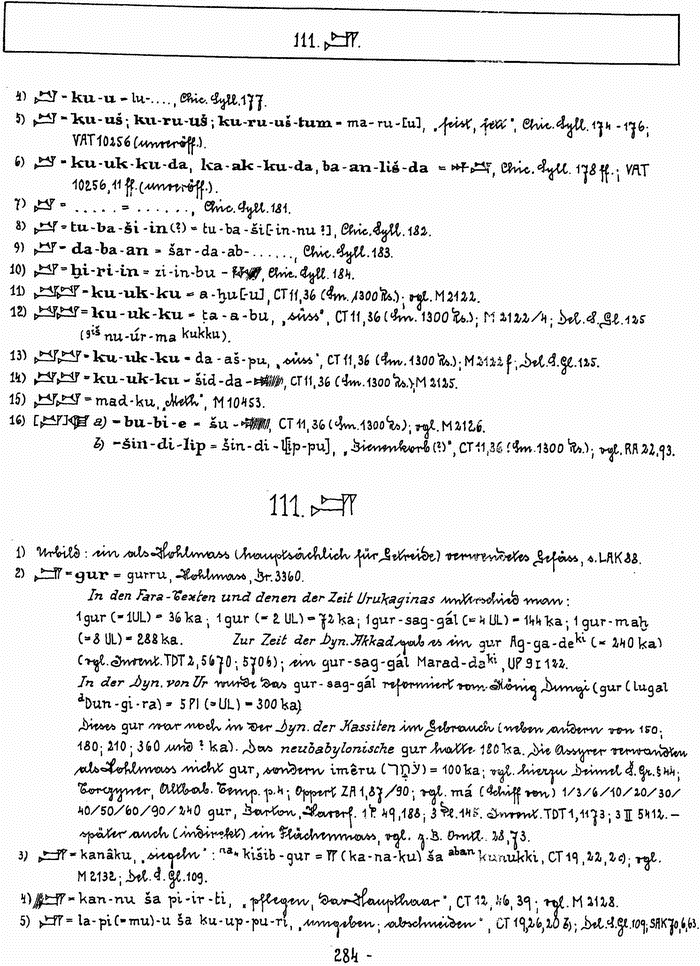 111. 𒄥.
4) = ku-u = lu-...., Chic. Syll. 177.
5) = ku-uš; ku-ru-uš; ku-ru-uš-tum = ma-ru-[u], „feist, fett“, Chic. Syll. 174-176;
VAT 10256 (unveröff.).
6) = ku-uk-ku-da, ka-ak-ku-da, ba-an-liš-da = , Chic. Syll. 178 ff.; VAT
10256, 11 ff. (unveröff.).
7) = ..... = ......, Chic. Syll. 181.
8) = tu-ba-ši-in(?) = tu-ba-ši[-in-nu?], Chic. Syll. 182.
9) = da-ba-an = šar-da-ab-......, Chic. Syll. 183.
10) = ḫi-ri-in = zi-in-bu - , Chic. Syll. 184.
11) = ku-uk-ku = a-ḫu[-u], CT 11, 36 (Sm. 1300 Rs.); vgl. M 2122.
12) = ku-uk-ku = ṭa-a-bu, „süss“, CT 11, 36 (Sm. 1300 Rs.); M 2122/4; Del. S. Gl. 125
(giš nu-úr-ma kukku).
13) = ku-uk-ku = da-aš-pu, „süss“, CT 11, 36 (Sm. 1300 Rs.); M 2122 f; Del. S. Gl. 125.
14) = ku-uk-ku = šid-da- , CT 11, 36 (Sm. 1300 Rs.); M 2125.
15) = mad-ku, „Meth“, M 10453.
16) a) = bu-bi-e = šu - , CT 11, 36 (Sm. 1300 Rs.); vgl. M 2126.
b) -šin-di-lip = šin-di-l[ip-pu], „Bienenkorb (?)“, CT 11, 36 (Sm. 1300 Rs.); vgl. RA 22, 93.
111. 𒄥
1) Urbild: ein als Hohlmass (hauptsächlich für Getreide) verwendetes Gefäss, s. LAK 88.
2) 𒄥 = gur = gurru, Hohlmass, Br. 3360.
In den Fara-Texten und denen der Zeit Urukaginas unterschied man:
1 gur (= 1 UL) = 36 ka; 1 gur (= 2 UL) = 72 ka; 1 gur-sag-gál (= 4 UL) = 144 ka; 1 gur-maḫ
(= 8 UL) = 288 ka. Zur Zeit der Dyn. Akkad gab es im gur Ag-ga-de ki (= 240 ka)
(vgl. Invent. TDT 2, 5670; 5706); ein gur-sag-gál Marad-da ki, UP 9 I 122.
In der Dyn. von Ur wurde das gur-sag-gál reformiert vom König Dungi (gur (lugal
dDun-gi-ra) = 5 PI (= UL) = 300 ka)
Dieses gur war noch in der Dyn. der Kassiten im Gebrauch (neben andern von 150;
180; 210; 360 und ? ka). Das neubabylonische gur hatte 180 ka. Die Assyrer verwandten
als Hohlmass nicht gur, sondern imêru (חֹמֶר) = 100 ka; vgl. hierzu Deimel Š. Gr. § 44;
Torczyner, Altbab. Temp. p. 4; Oppert ZA 1, 87/90; vgl. má (Schiff von) 1/3/6/10/20/30/
40/50/60/90/240 gur, Barton, Haverf. 1 Pl. 49, 188; 3 Pl. 145. Invent. TDT 1, 1173; 3 II 5412. -
später auch (indirekt) ein Flächenmass, vgl. z.B. Orntl. 28, 73.
3) 𒄥 = kanâku, „siegeln“: na₄ kišib-gur = (ka-na-ku) ša aban kunukki, CT 19, 22, 20; vgl.
M 2132; Del. S. Gl. 109.
4) = kan-nu ša pi-ir-ti, „pflegen, das Haupthaar“, CT 12, 46, 39; vgl. M 2128.
5) 𒄥 = la-pi(=mu)-u ša ku-up-pu-ri, „umgeben; abschneiden“, CT 19, 26, 20 b; Del. S. Gl. 109; SAK 70, 6, 63.
284 -